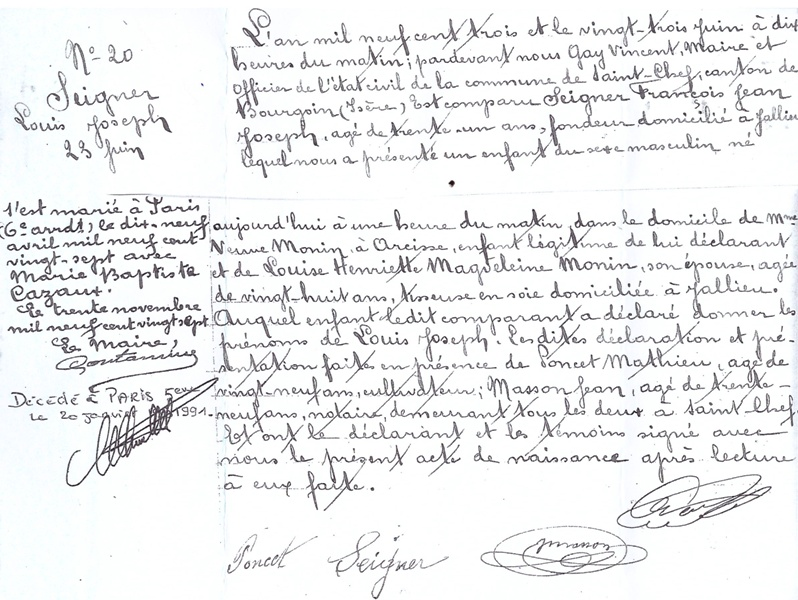 N° 20
Seigner
Louis Joseph
23 juin
L'an mil neuf cent trois et le vingt-trois juin à dix
heures du matin; pardevant nous Gay Vincent, Maire et
Officier de l'état civil de la commune de Saint-Chef, canton de
Bourgoin (Isère,) Est comparu Seigner François Jean
Joseph, agé de trente-un ans, fondeur domicilié à Jallieu
lequel nous a présenté un enfant du sexe masculin né
s'est marié à Paris
(6e arrdt), le dix-neuf
avril mil neuf cent
vingt-sept avec
Marie Baptiste
Cazaux.
Le trente novembre
mil neuf cent vingt sept
Le Maire,
DÉCÉDÉ à PARIS 5eme
le 20 janvier 1991.
aujourd'hui à une heure du matin, dans le domicile de Mme
Veuve Monin, à Arcisse, enfant légitime de lui déclarant
et de Louise Henriette Magdeleine Monin, son épouse, agée
de vingt-huit ans, tisseuse en soie domiciliée à Jallieu.
Auquel enfant ledit comparant a déclaré donner les
prénoms de Louis Joseph. Les dites déclaration et pré-
sentation faites en présence de Poncet Mathieu, agé de
vingt-neuf ans, cultivateur; Masson Jean, agé de trente-
neuf ans, notaire, demeurant tous les deux à Saint Chef
Et ont le déclarant et les témoins signé avec
nous le présent acte de naissance après lecture
à eux faite.
Poncet Seigner Masson